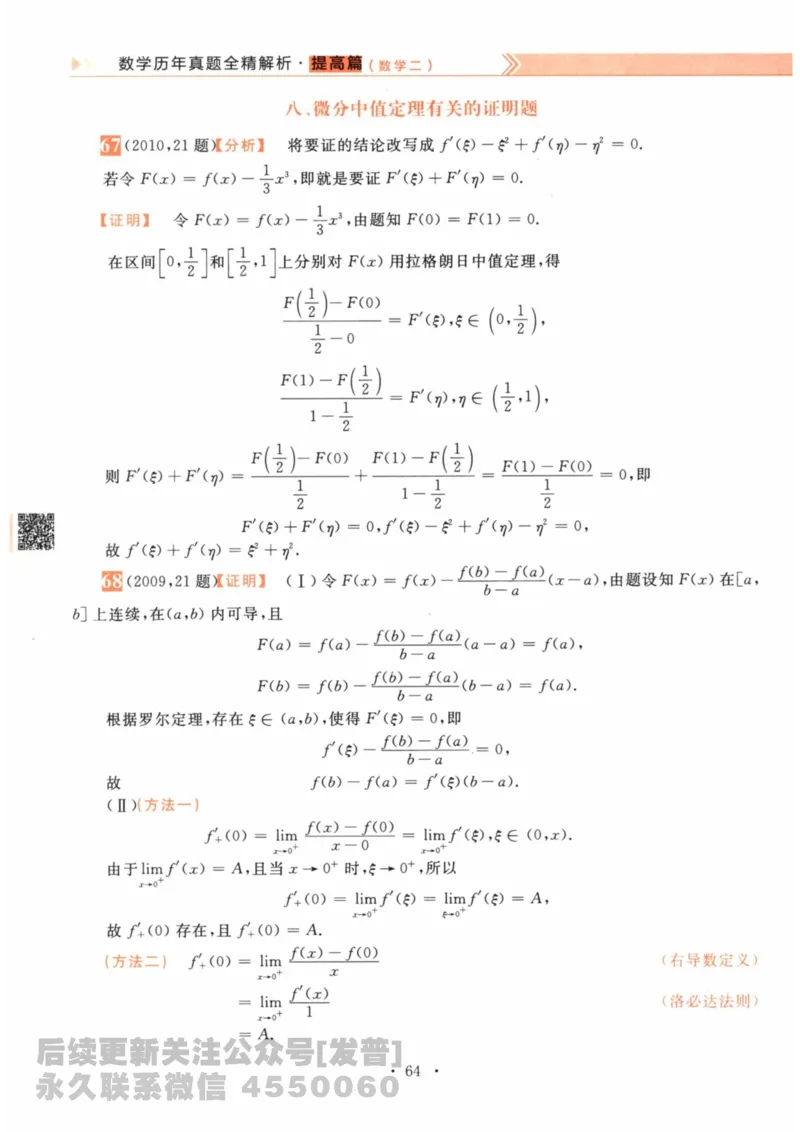 数学历年真题全精解析·提高篇(数学二)
八、微分中值定理有关的证明题
67 (2010,21题)【分析】 将要证的结论改写成 f′(ξ)−ξ²+f′(η)−η² = 0.
若令 F(x) = f(x) − 1/3 x³,即就是要证 F′(ξ)+F′(η) = 0.
【证明】 令 F(x) = f(x) − 1/3 x³,由题知 F(0) = F(1) = 0.
在区间[0,1/2]和[1/2,1]上分别对 F(x) 用拉格朗日中值定理,得
(F(1/2)−F(0))/(1/2−0) = F′(ξ),ξ∈(0,1/2),
(F(1)−F(1/2))/(1−1/2) = F′(η),η∈(1/2,1),
则 F′(ξ)+F′(η) = (F(1/2)−F(0))/(1/2) + (F(1)−F(1/2))/(1−1/2) = (F(1)−F(0))/(1/2) = 0,即
F′(ξ)+F′(η) = 0,f′(ξ)−ξ²+f′(η)−η² = 0,
故 f′(ξ)+f′(η) = ξ²+η².
68 (2009,21题)【证明】 (Ⅰ)令 F(x) = f(x) − (f(b)−f(a))/(b−a) (x−a),由题设知 F(x) 在[a,
b]上连续,在(a,b) 内可导,且
F(a) = f(a) − (f(b)−f(a))/(b−a) (a−a) = f(a),
F(b) = f(b) − (f(b)−f(a))/(b−a) (b−a) = f(a).
根据罗尔定理,存在 ξ∈(a,b),使得 F′(ξ) = 0,即
f′(ξ) − (f(b)−f(a))/(b−a) = 0,
故 f(b)−f(a) = f′(ξ)(b−a).
(Ⅱ)(方法一)
f′₊(0) = lim x→0⁺ (f(x)−f(0))/(x−0) = lim x→0⁺ f′(ξ),ξ∈(0,x).
由于 lim x→0⁺ f′(x) = A,且当 x→0⁺ 时,ξ→0⁺,所以
f′₊(0) = lim x→0⁺ f′(ξ) = lim ξ→0⁺ f′(ξ) = A,
故 f′₊(0) 存在,且 f′₊(0) = A.
(方法二) f′₊(0) = lim x→0⁺ (f(x)−f(0))/x (右导数定义)
= lim x→0⁺ f′(x)/1 (洛必达法则)
= A.
后续更新关注公众号[发普]
永久联系微信 4550060
· 64 ·